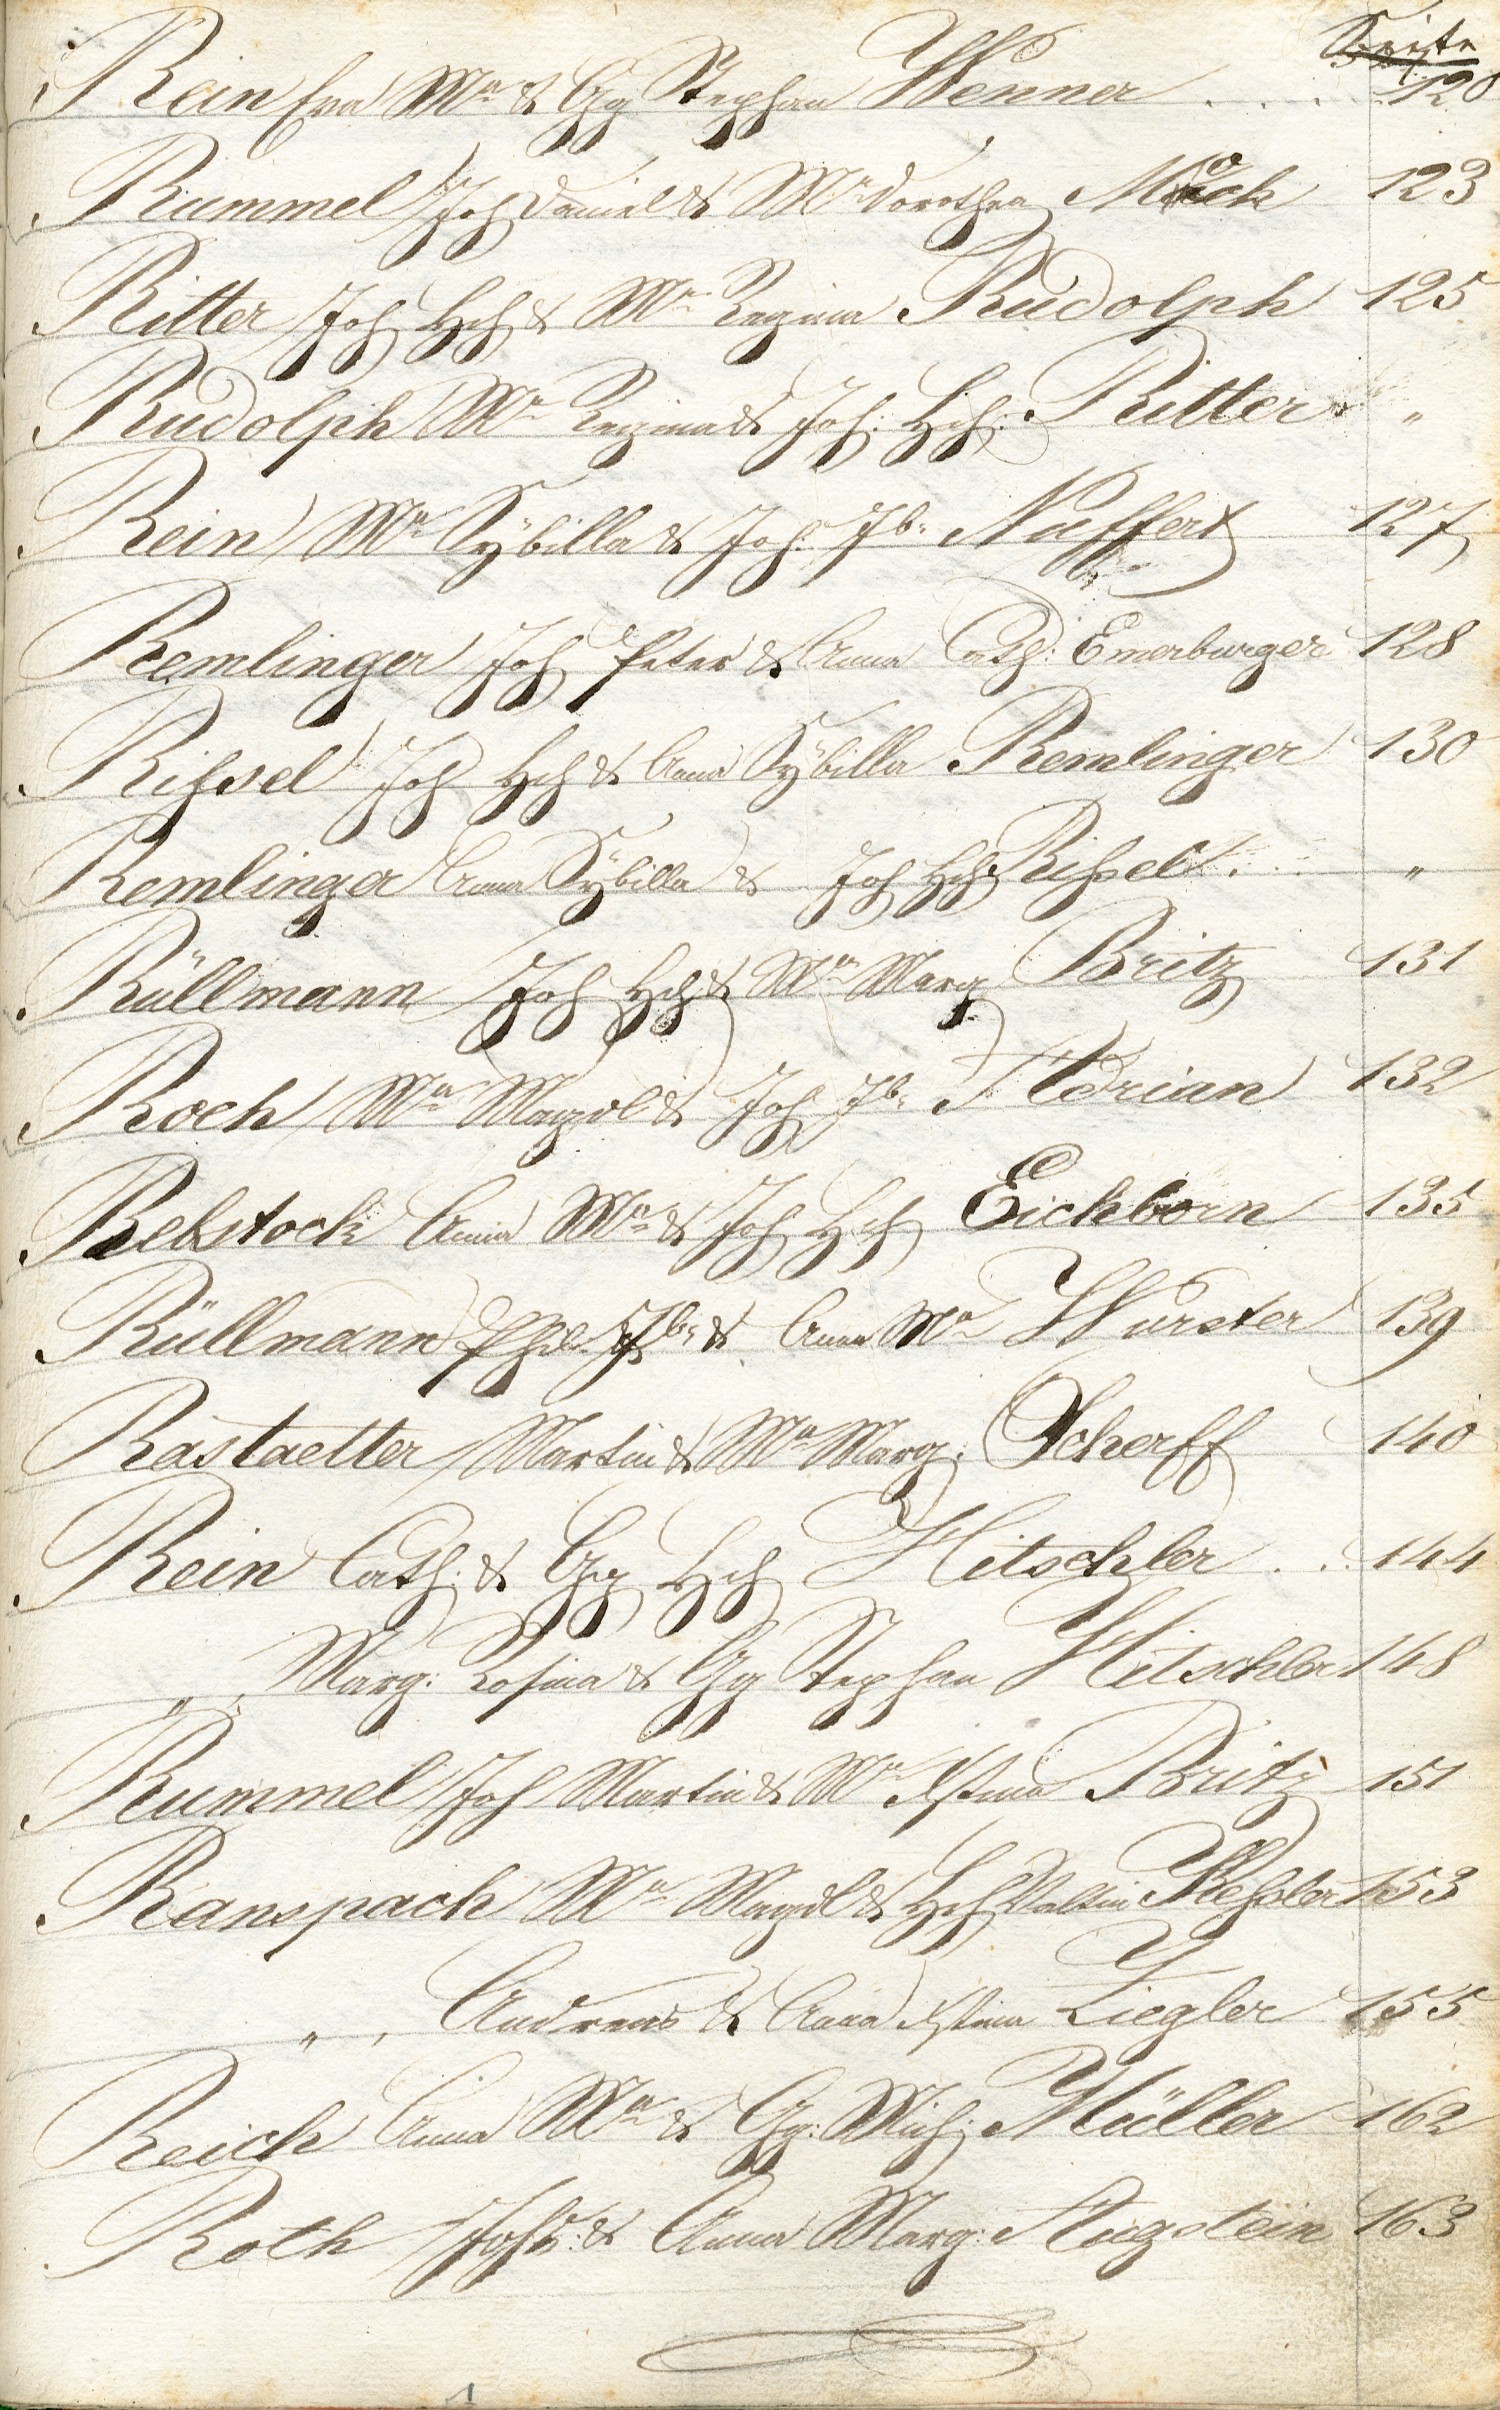 Seite
Rein Eva Ma & Gg Stephan Wenner . . . . 120
Rummel Joh Daniel & Ma Dorothea Mock 123
Ritter Joh Hch & Ma Regina Rudolph 125
Rudolph Ma Regina & Joh: Hch: Ritter "
Rein Ma Sÿbilla & Joh: Jb: Naffert 127
Remlinger Joh Peter & Anna Cath: Emerburger 128
Rißsel Joh Hch & Anna Sÿbilla Remlinger 130
Remlinger Anna Sÿbilla & Joh Hch Rißel . . . "
Rüllmann Joh Hch & Ma Marg Britz 131
Roch Ma Magdl & Joh Jb: Florian 132
Rebstock Anna Ma & Joh Hch Eichborn 135
Rüllmann Phil: Jb: & Anna Ma Wurster 139
Rastaetter Martin & Ma Marg: Scherff 140
Rein Cath: & Gg Hch Hitschler . . 144
" , Marg: Rosina & Gg Stephan Hitschler 148
Rummel Joh Martin & Ma Xstina Britz 151
Ranspach Ma Magdl & Hch Valtin Keßler 153
" , Andreas & Anna Xstina Ziegler 155
Reich Anna Ma & Gg: Mich: Müller 162
Roth Johs: & Anna Marg: Augstein 163
1